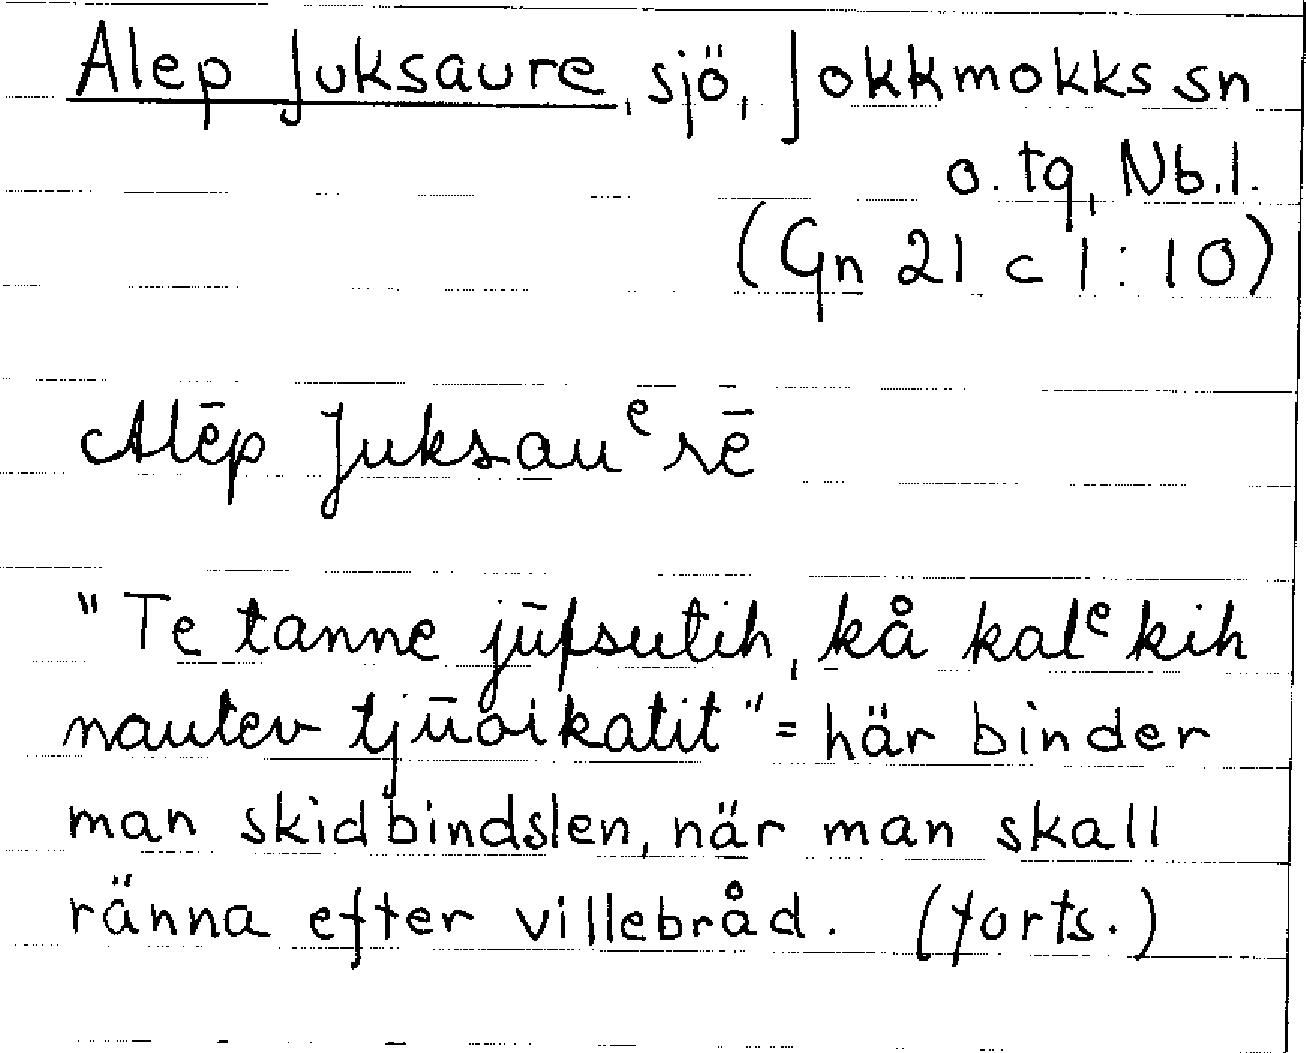 Alep Juksaure, sjö, Jokkmokks sn
o. tg, Nb.l.
(Gn 21 c 1:10)
Alēp Juksauᵉrē
"Te tanne jūksutih, kå kalᵉkih
nautev tjūoikatit" = här binder
man skidbindslen, när man skall
ränna efter villebråd. (forts.)